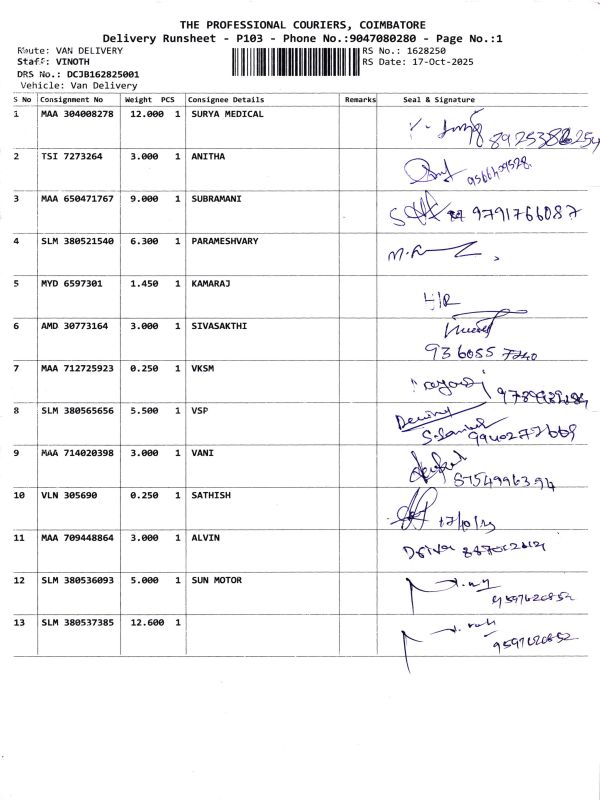 THE PROFESSIONAL COURIERS, COIMBATORE
Delivery Runsheet - P103 - Phone No.:9047080280 - Page No.:1
Route: VAN DELIVERY RS No.: 1628250
Staff: VINOTH RS Date: 17-Oct-2025
DRS No.: DCJB162825001
Vehicle: Van Delivery
S No Consignment No Weight PCS Consignee Details Remarks Seal & Signature
1 MAA 304008278 12.000 1 SURYA MEDICAL
2 TSI 7273264 3.000 1 ANITHA
3 MAA 650471767 9.000 1 SUBRAMANI 9791766087
4 SLM 380521540 6.300 1 PARAMESHVARY
5 MYD 6597301 1.450 1 KAMARAJ H/R
6 AMD 30773164 3.000 1 SIVASAKTHI
936055 7240
7 MAA 712725923 0.250 1 VKSM
8 SLM 380565656 5.500 1 VSP
9 MAA 714020398 3.000 1 VANI
8754996394
10 VLN 305690 0.250 1 SATHISH
11 MAA 709448864 3.000 1 ALVIN Driver
12 SLM 380536093 5.000 1 SUN MOTOR
9597620852
13 SLM 380537385 12.600 1
9597620852